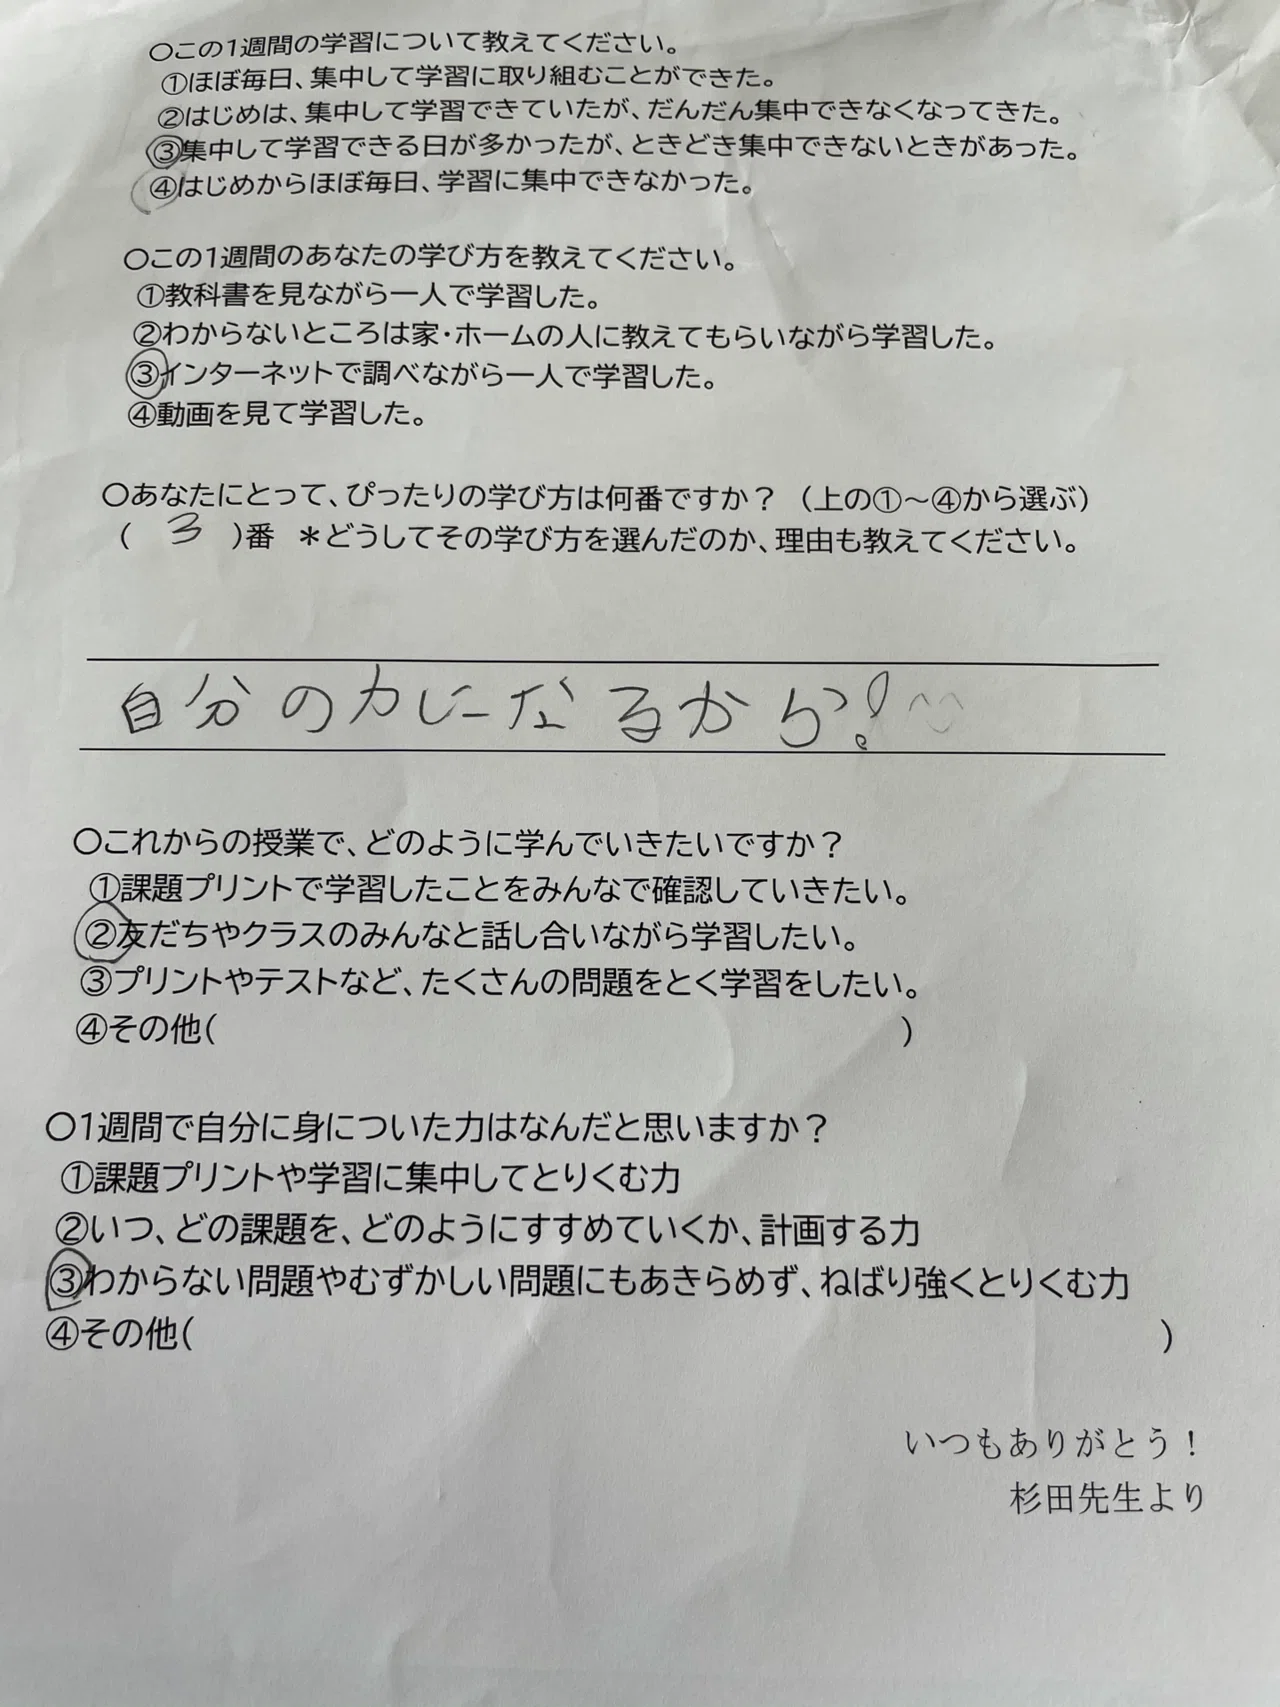 ○この1週間の学習について教えてください。
①ほぼ毎日、集中して学習に取り組むことができた。
②はじめは、集中して学習できていたが、だんだん集中できなくなってきた。
③集中して学習できる日が多かったが、ときどき集中できないときがあった。
④はじめからほぼ毎日、学習に集中できなかった。
○この1週間のあなたの学び方を教えてください。
①教科書を見ながら一人で学習した。
②わからないところは家・ホームの人に教えてもらいながら学習した。
③インターネットで調べながら一人で学習した。
④動画を見て学習した。
○あなたにとって、ぴったりの学び方は何番ですか？（上の①～④から選ぶ）
( 3 )番 ＊どうしてその学び方を選んだのか、理由も教えてください。
自分の力になるから!
○これからの授業で、どのように学んでいきたいですか？
①課題プリントで学習したことをみんなで確認していきたい。
②友だちやクラスのみんなと話し合いながら学習したい。
③プリントやテストなど、たくさんの問題をとく学習をしたい。
④その他( )
○1週間で自分に身についた力はなんだと思いますか？
①課題プリントや学習に集中してとりくむ力
②いつ、どの課題を、どのようにすすめていくか、計画する力
③わからない問題やむずかしい問題にもあきらめず、ねばり強くとりくむ力
④その他( )
いつもありがとう！
杉田先生より